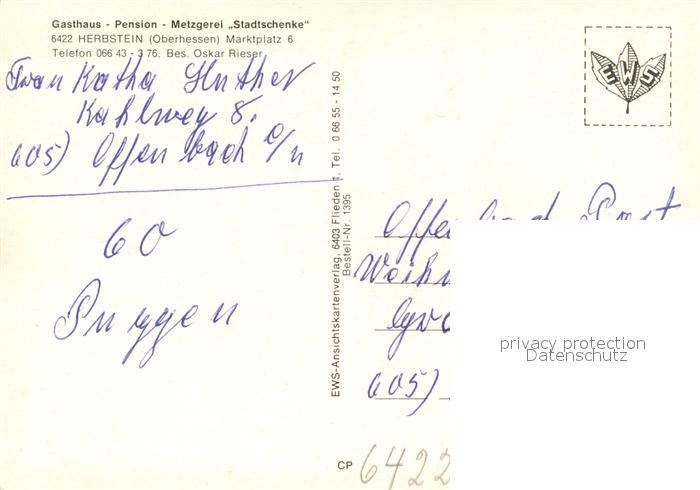 Gasthaus - Pension - Metzgerei „Stadtschenke"
6422 HERBSTEIN (Oberhessen) Marktplatz 6
Telefon 066 43 - 3 76, Bes. Oskar Rieser
Frau Katha Huther
Kahlweg 8.
605) Offenbach a/n
60
Puggen
EWS-Ansichtskartenverlag, 6403 Flieden 1, Tel. 0 66 55 - 14 50
Bestell-Nr. 1395
EWS
Offenbach Post
605)
privacy protection
Datenschutz
CP 6422